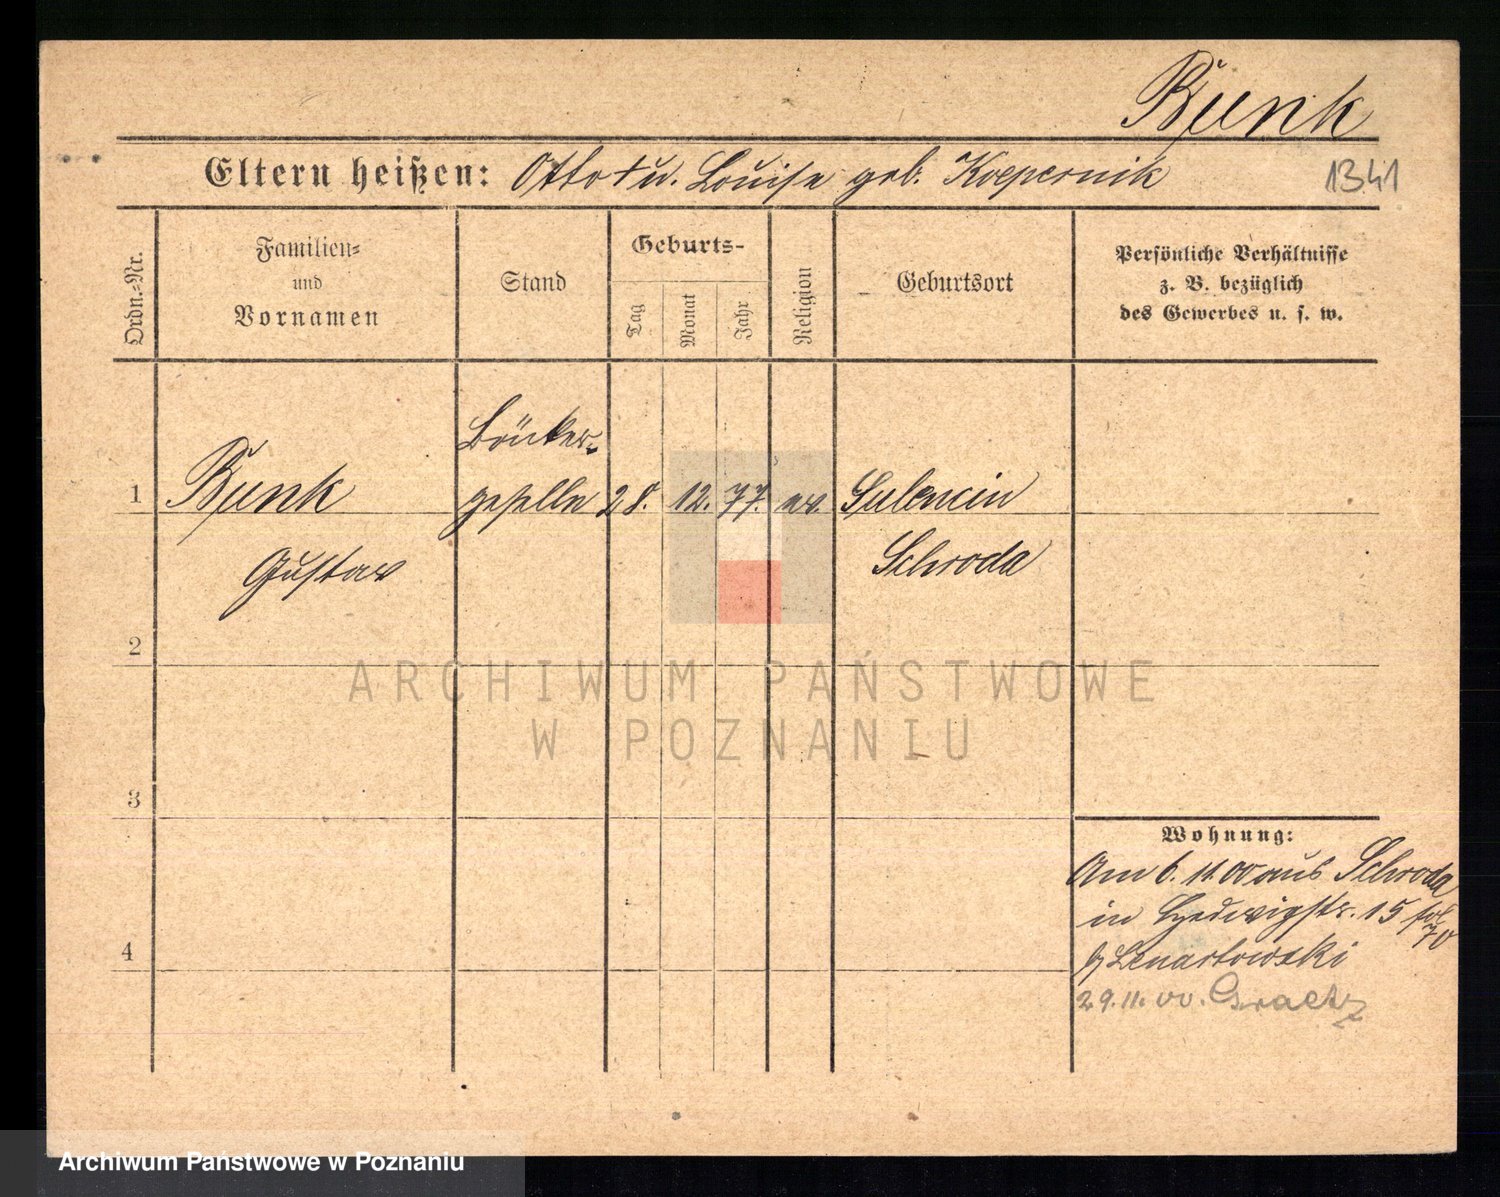 Bunk
Eltern heißen: Otto † u. Louise geb. Koepernik
1341
Ordn.-Nr.
Familien- und Vornamen
Stand
Geburts-
Tag
Monat
Jahr
Religion
Geburtsort
Persönliche Verhältnisse
z. B. bezüglich
des Gewerbes u. s. w.
Bäcker-
1 Bunk geselle 28. 12. 77. ev. Sulencin
Gustav Schroda
2
3
4
Wohnung:
Am 6. 11. 00 aus Schroda
in Hedwigstr. 15
b/ Lenartowski
29. 11. 00. Graetz
ARCHIWUM PAŃSTWOWE
W POZNANIU
Archiwum Państwowe w Poznaniu